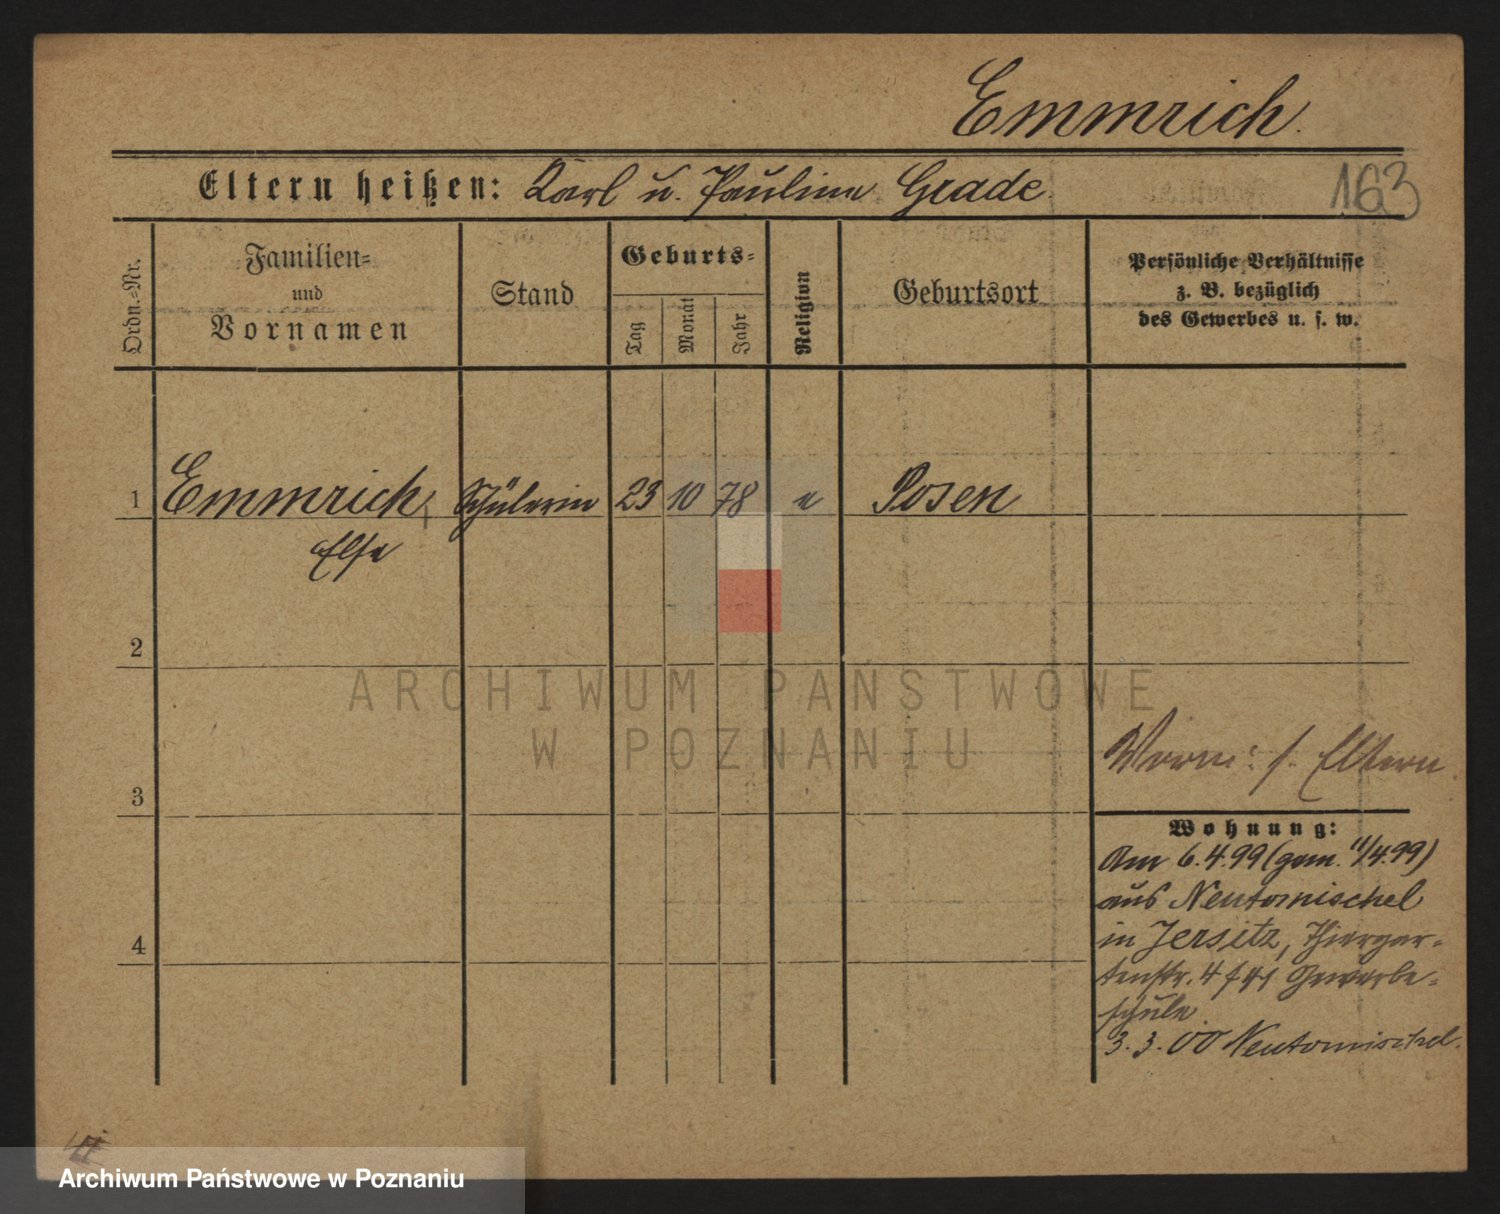 Emmrich.
Eltern heißen: Karl u. Pauline Grade
163
Ordn.=Nr.
Familien=
und
Vornamen
Stand
Geburts=
Tag
Monat
Jahr
Religion
Geburtsort
Persönliche Verhältnisse
z. B. bezüglich
des Gewerbes u. s. w.
1 Emmrich, Schülerin 23 10 78 e Posen
Else
2
3
4
Verm: s. Eltern.
Wohnung:
Am 6.4.99 (gem. 11/4.99)
aus Neutomischel
in Jersitz, Thiergar=
tenstr. 4 Gewerbe=
schule
3.3.00 Neutomischel.
ARCHIWUM PAŃSTWOWE
W POZNANIU
Archiwum Państwowe w Poznaniu